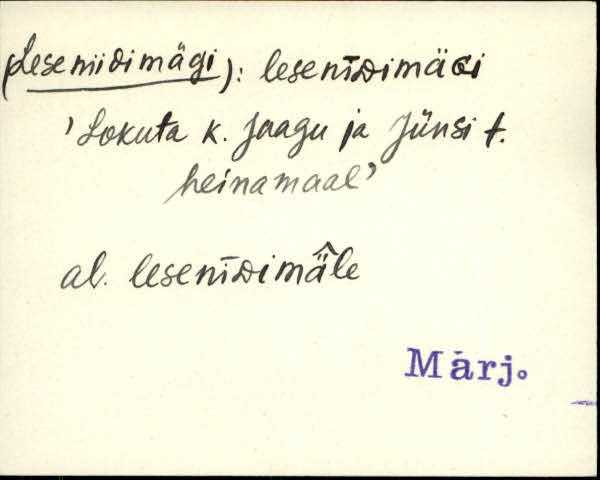 (Leseniidimägi): lesenīᴅimäɢi
'Lokuta k. Jaagu ja Jünsi t.
heinamaal'
al. lesenīᴅimä̂le
Märj.